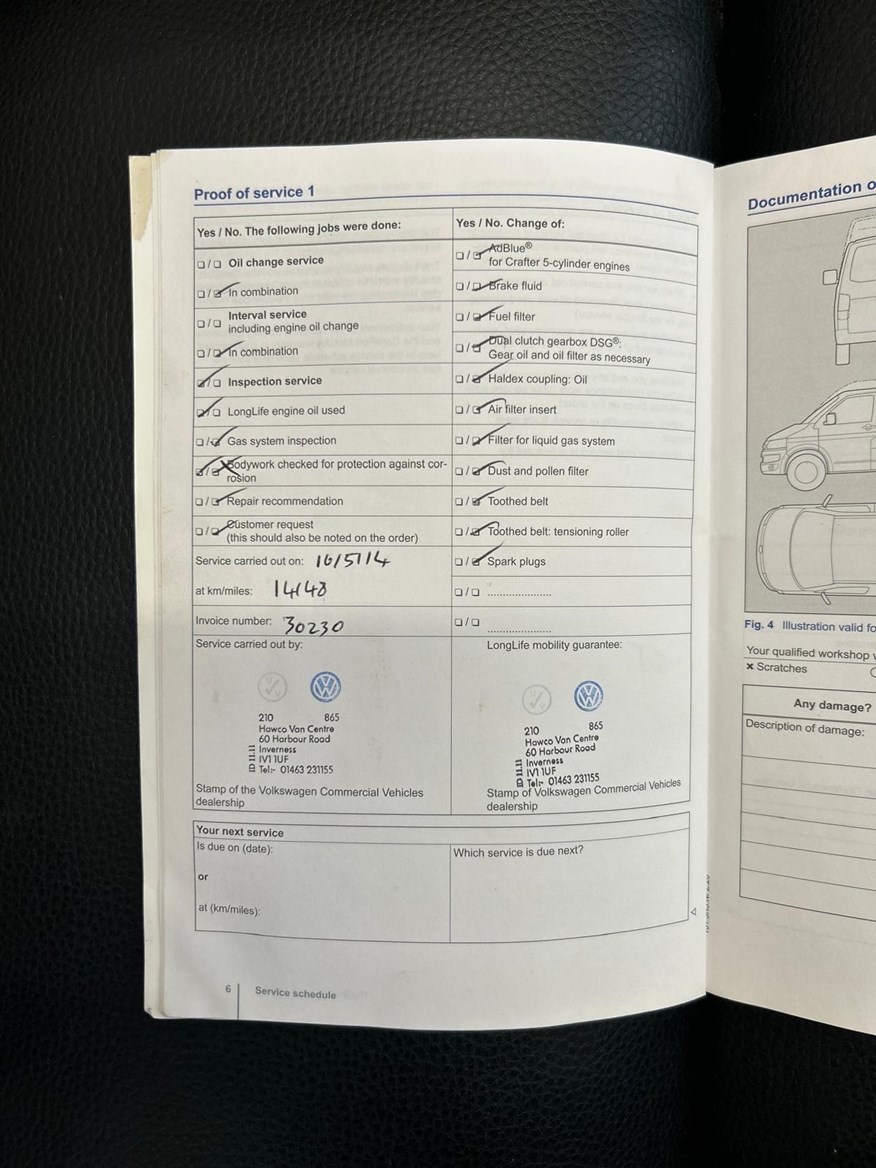 Proof of service 1
Yes / No. The following jobs were done:
☐ / ☐ Oil change service
☐ / ☑ In combination
☐ / ☐ Interval service
including engine oil change
☐ / ☑ In combination
☑ / ☐ Inspection service
☑ / ☐ LongLife engine oil used
☐ / ☑ Gas system inspection
☑ / ☑ Bodywork checked for protection against cor-
rosion
☐ / ☑ Repair recommendation
☐ / ☑ Customer request
(this should also be noted on the order)
Service carried out on: 16/5/14
at km/miles: 14148
Invoice number: 30230
Service carried out by:
210 865
Howco Van Centre
60 Harbour Road
Inverness
IV1 1UF
Tel:- 01463 231155
Stamp of the Volkswagen Commercial Vehicles
dealership
Yes / No. Change of:
☐ / ☑ AdBlue®
for Crafter 5-cylinder engines
☐ / ☑ Brake fluid
☐ / ☑ Fuel filter
☐ / ☑ Dual clutch gearbox DSG®:
Gear oil and oil filter as necessary
☐ / ☑ Haldex coupling: Oil
☐ / ☑ Air filter insert
☐ / ☑ Filter for liquid gas system
☐ / ☑ Dust and pollen filter
☐ / ☑ Toothed belt
☐ / ☑ Toothed belt: tensioning roller
☐ / ☑ Spark plugs
☐ / ☐ ......................
☐ / ☐ ......................
LongLife mobility guarantee:
210 865
Howco Van Centre
60 Harbour Road
Inverness
IV1 1UF
Tel:- 01463 231155
Stamp of Volkswagen Commercial Vehicles
dealership
Your next service
Is due on (date):
or
at (km/miles):
Which service is due next?
6 Service schedule
Documentation o
Fig. 4 Illustration valid fo
Your qualified workshop
× Scratches
Any damage?
Description of damage: